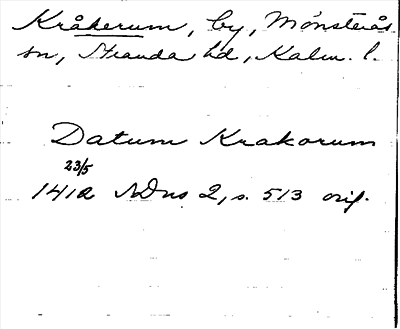 Kråkerum, by, Mönsterås
sn, Stranda hd, Kalm. l.
Datum Krakorum
23/5
1412 SDns 2, s. 513 orig.